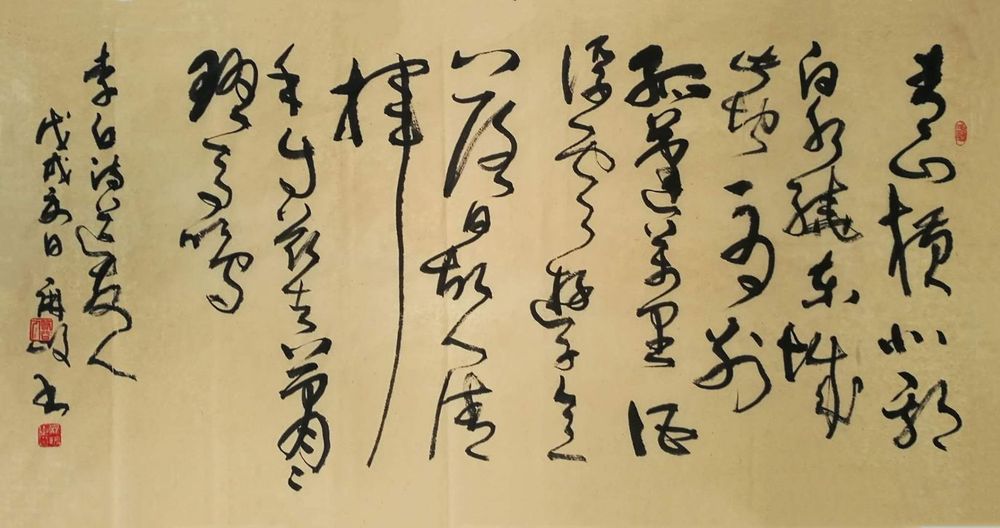 青山横北郭
白水繞东城
此地一为别
孤蓬萬里征
浮云遊子意
落日故人情
揮
手自兹去萧〻
班马鸣
李白诗送友人
戊戌秋日 书